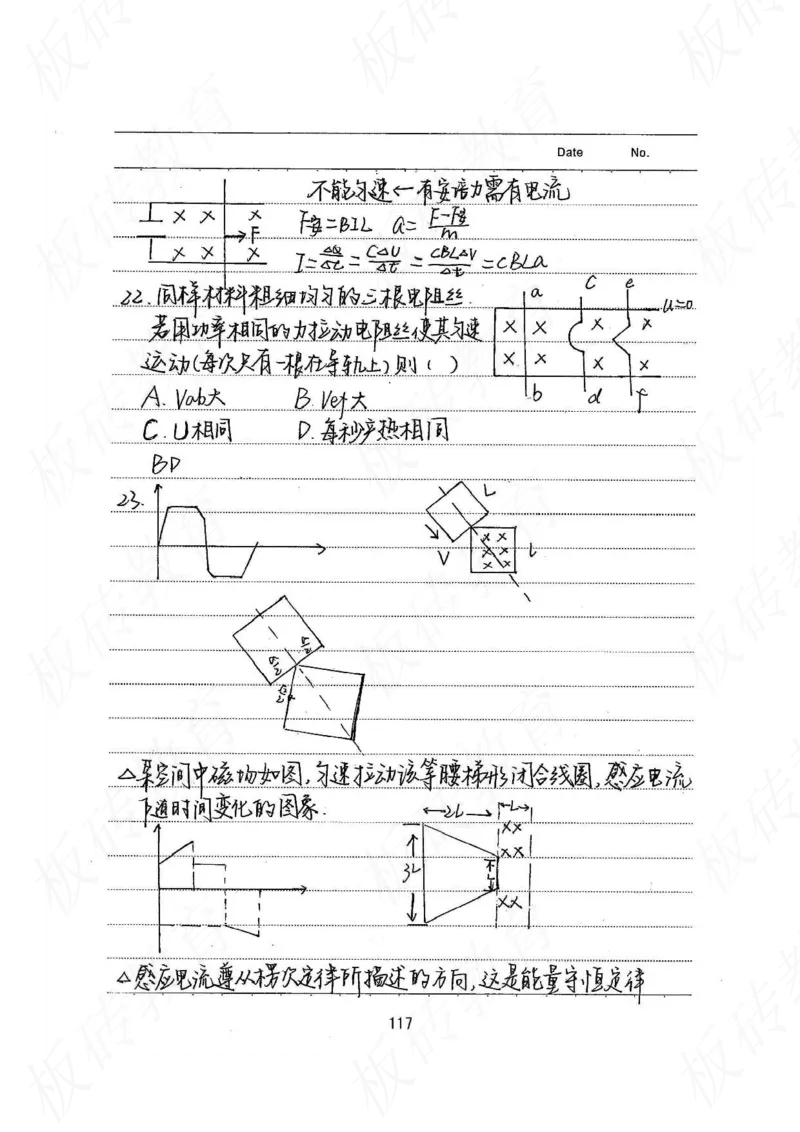 Date No.
不能匀速←有安培力需有电流
F安=BIL a=F-F安/m
F
I=ΔQ/Δt=CΔU/Δt=CBLΔV/Δt=CBLa
22.同样材料粗细均匀的三根电阻丝.
a c e u=0
若用功率相同的力拉动电阻丝使其匀速
运动(每次只有一根在导轨上)则( )
b d f
A.Vab大 B.Vef大
C.U相同 D.每秒产热相同
BD
23.
L
V L
√2/2 √2/2
√2/2
△某空间中磁场如图,匀速拉动该等腰梯形闭合线圈,感应电流
随时间变化的图象.
←2L→ ←L→
3L L
△感应电流遵从楞次定律所描述的方向,这是能量守恒定律
117
板砖教育